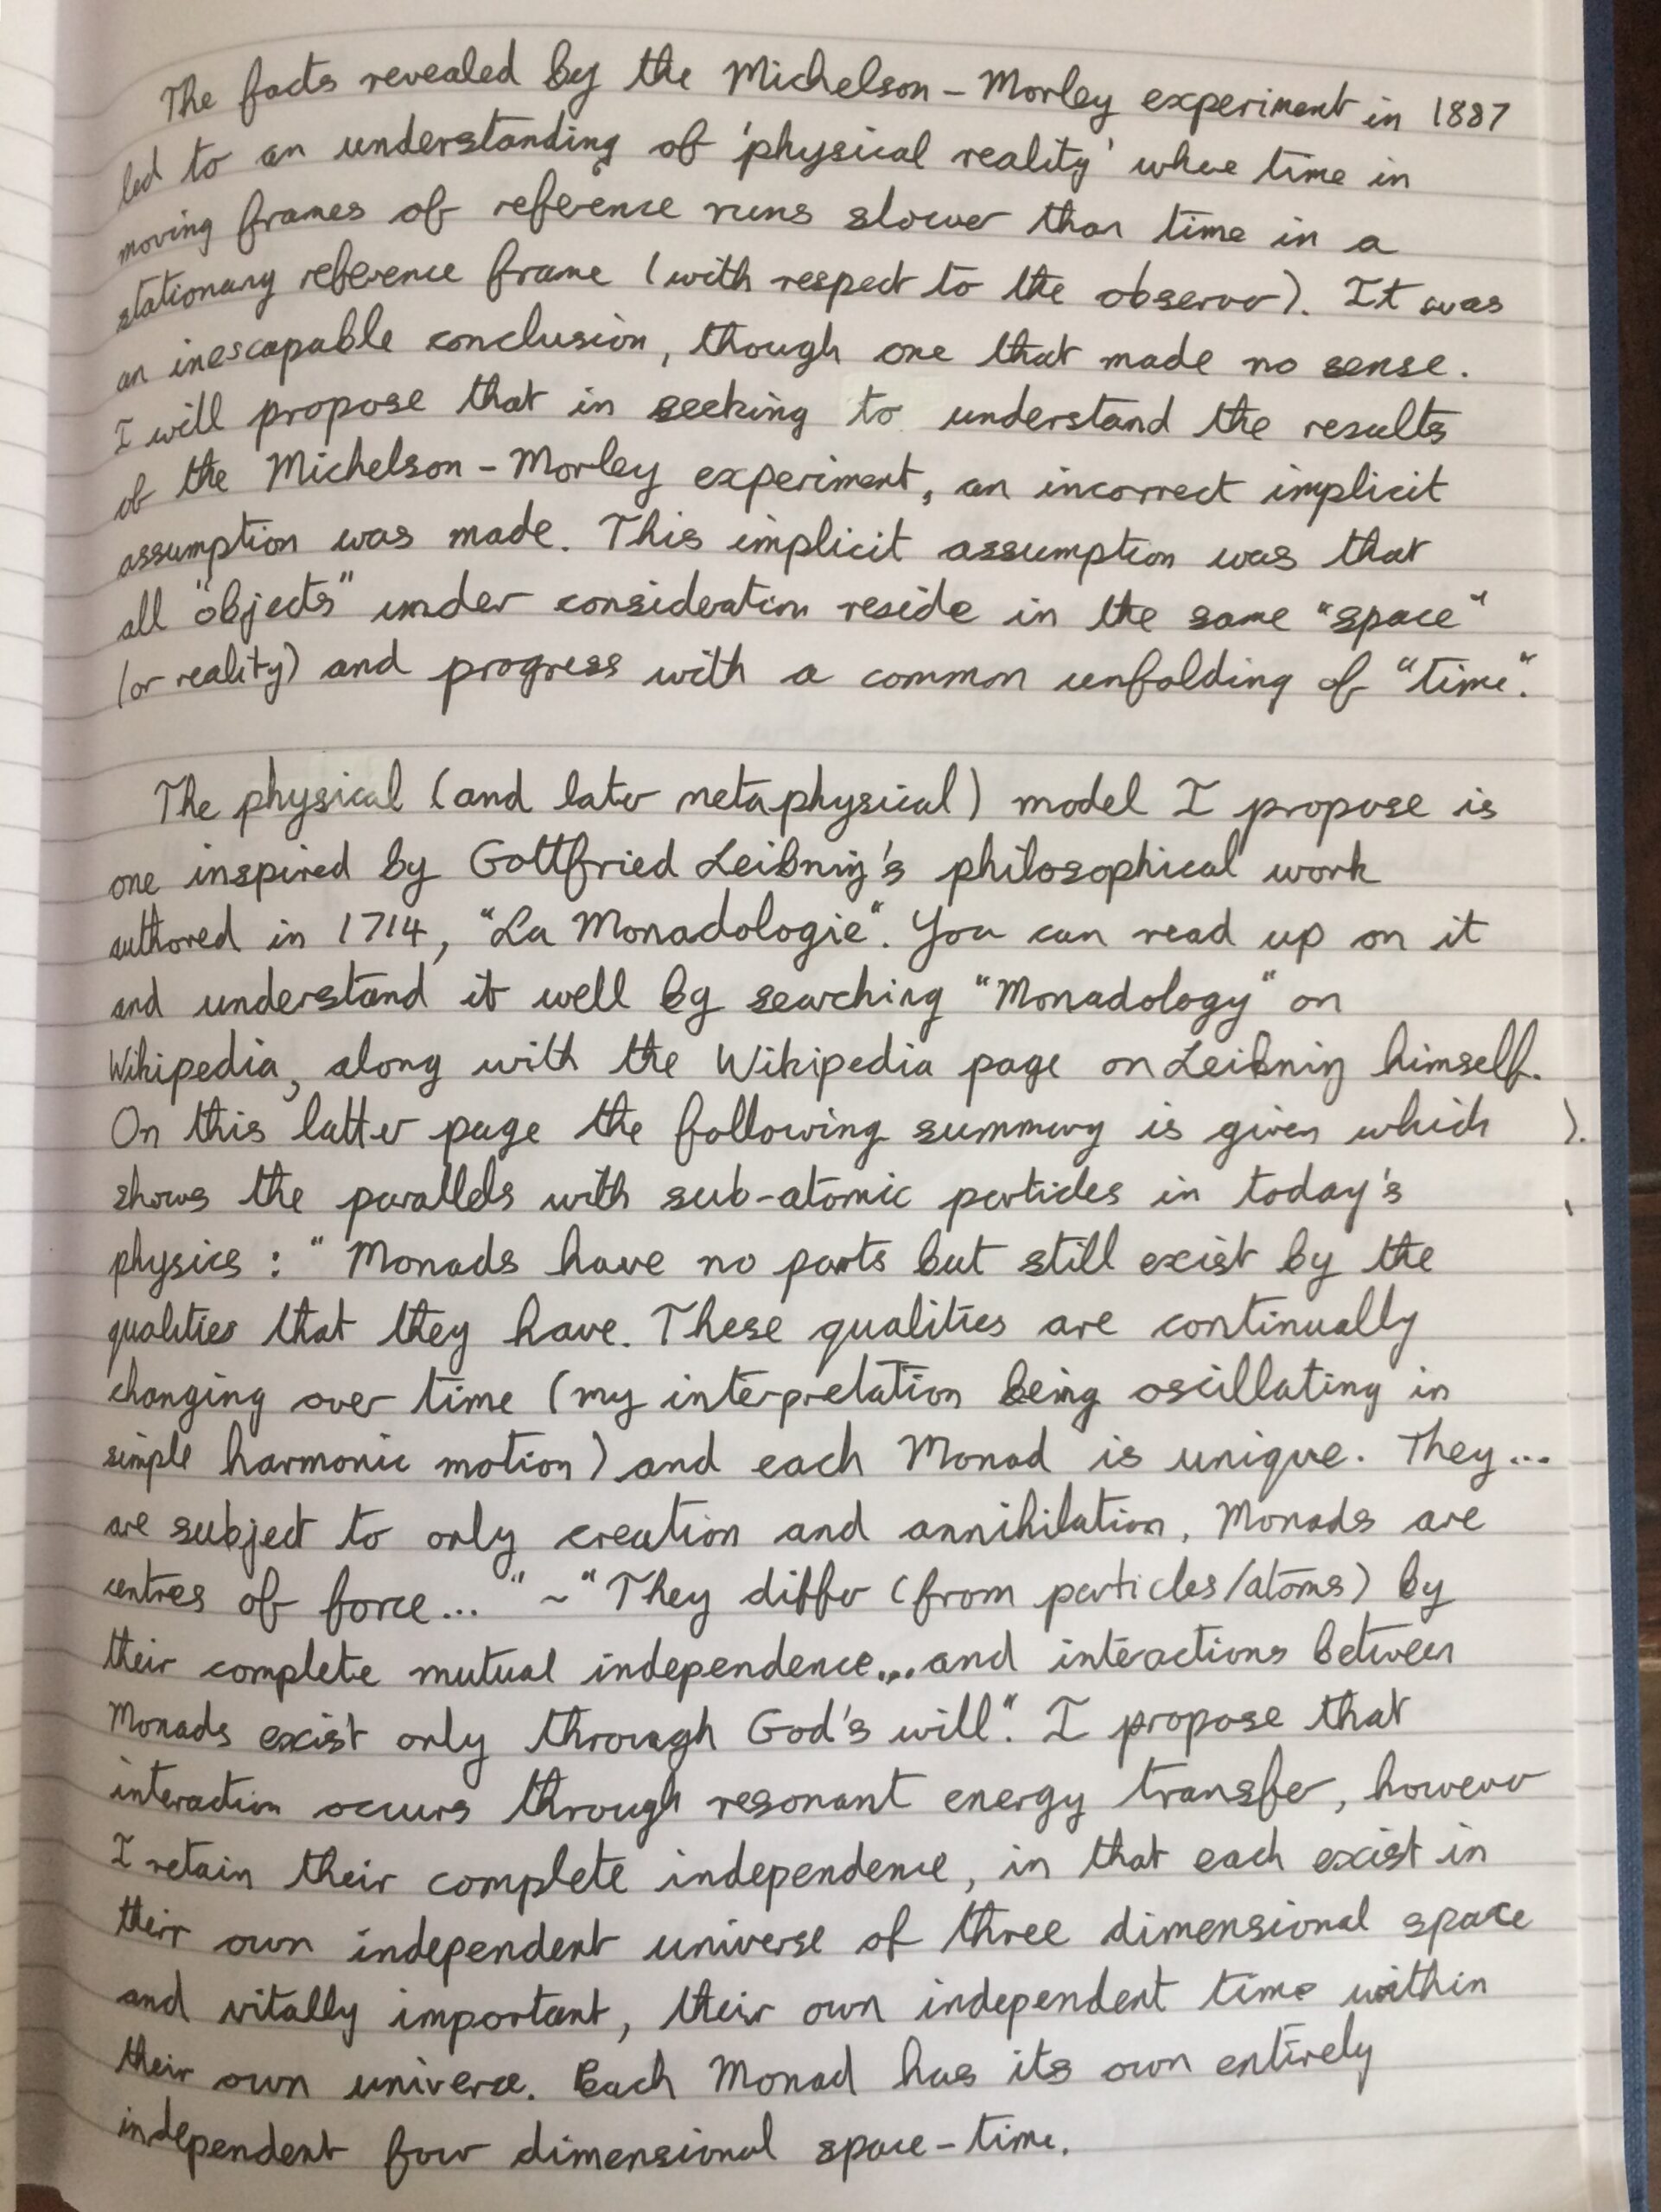 The facts revealed by the Michelson-Morley experiment in 1887
led to an understanding of 'physical reality' where time in
moving frames of reference runs slower than time in a
stationary reference frame (with respect to the observer). It was
an inescapable conclusion, though one that made no sense.
I will propose that in seeking to understand the results
of the Michelson-Morley experiment, an incorrect implicit
assumption was made. This implicit assumption was that
all "objects" under consideration reside in the same "space"
(or reality) and progress with a common unfolding of "time".
The physical (and later metaphysical) model I propose is
one inspired by Gottfried Leibniz's philosophical work
authored in 1714, "La Monadologie". You can read up on it
and understand it well by searching "Monadology" on
Wikipedia, along with the Wikipedia page on Leibniz himself.
On this latter page the following summary is given which
shows the parallels with sub-atomic particles in today's
physics: "Monads have no parts but still exist by the
qualities that they have. These qualities are continually
changing over time (my interpretation being oscillating in
simple harmonic motion) and each Monad is unique. They...
are subject to only creation and annihilation, Monads are
centres of force..." ~ "They differ (from particles/atoms) by
their complete mutual independence... and interactions between
Monads exist only through God's will". I propose that
interaction occurs through resonant energy transfer, however
I retain their complete independence, in that each exist in
their own independent universe of three dimensional space
and vitally important, their own independent time within
their own universe. Each Monad has its own entirely
independent four dimensional space-time.